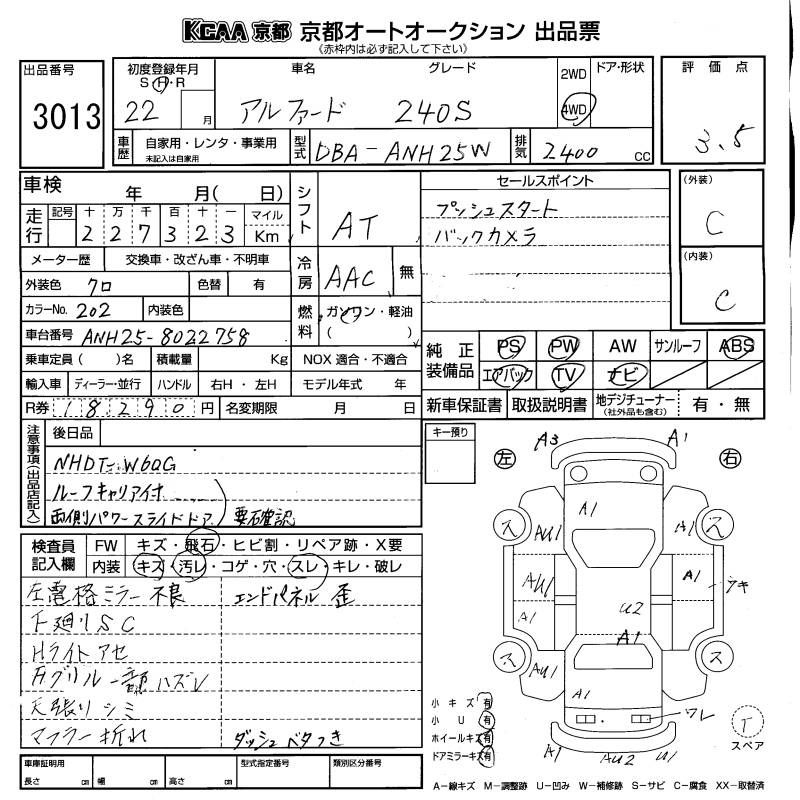 KCAA 京都 京都オートオークション 出品票
《赤枠内は必ず記入して下さい》
出品番号
3013
初度登録年月
S・H・R
22 月
車名 グレード
アルファード 240S
2WD
4WD
ドア・形状
評価点
3.5
車歴
自家用・レンタ・事業用
未記入は自家用
型式
DBA-ANH25W
排気
2400 cc
車検 年 月( 日)
走行
記号 十 万 千 百 十 一 マイル
2 2 7 3 2 3 Km
シフト
AT
メーター歴 交換車・改ざん車・不明車
冷房
AAC 無
外装色 クロ 色替 有
カラーNo. 202 内装色
燃料
ガソリン・軽油
( )
車台番号 ANH25-8022758
乗車定員( )名 積載量 Kg NOX 適合・不適合
輸入車 ディーラー・並行 ハンドル 右H・左H モデル年式 年
R券 18290円 名変期限 月 日
セールスポイント
プッシュスタート
バックカメラ
(外装)
C
(内装)
C
純正装備品
PS PW AW サンルーフ ABS
エアバック TV ナビ
新車保証書 取扱説明書 地デジチューナー (社外品も含む) 有・無
注意事項(出品店記入)
後日品
NHDT-W60G
ルーフキャリア付
両側パワースライドドア) 要石確認
キー預り
検査員記入欄
FW キズ・飛石・ヒビ割・リペア跡・X要
内装 キズ・汚レ・コゲ・穴・スレ・キレ・破レ
左電格ミラー不良 エンドパネル 歪
下廻りSC
Hライトアセ
Fグリル一部ハズレ
天張りシミ
マフラー折れ ダッシュベタつき
左 右
A3 A1
A1
ス AU1 A1 ス
AU1 A1 ワキ
A1 U2
A1
ス AU1 ス
A1
ワレ
A1 AU2 U1
小キズ 有
小U 有
ホイールキズ 有
ドアミラーキズ 有
T
スペア
車庫証明用
長さ cm 幅 cm 高さ cm
型式指定番号 類別区分番号
A-線キズ M-調整跡 U-凹み W-補修跡 S-サビ C-腐食 XX-取替済